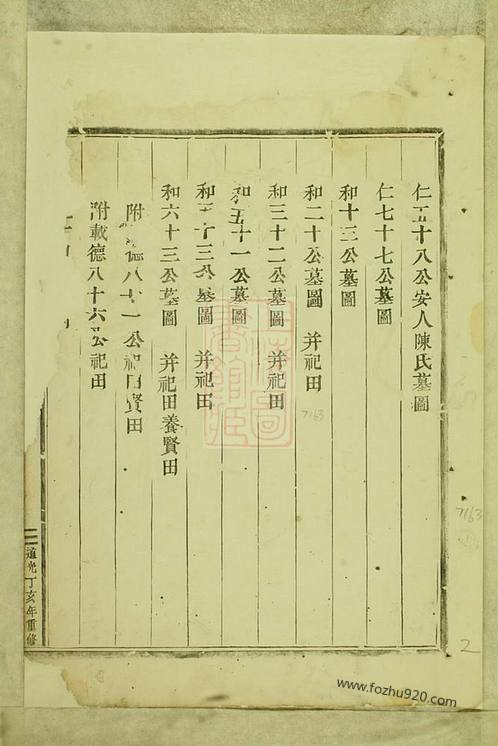 仁五十八公安人陳氏墓圖
仁七十七公墓圖
和十三公墓圖
和二十公墓圖 并祀田
和三十二公墓圖 并祀田
和五十一公墓圖
和五十三公墓圖 并祀田
和六十三公墓圖 并祀田養賢田
附 德八十一公祀田賢田
附載德八十六公祀田
道光丁亥年重修
7163
7163
2
www.fozhu920.com